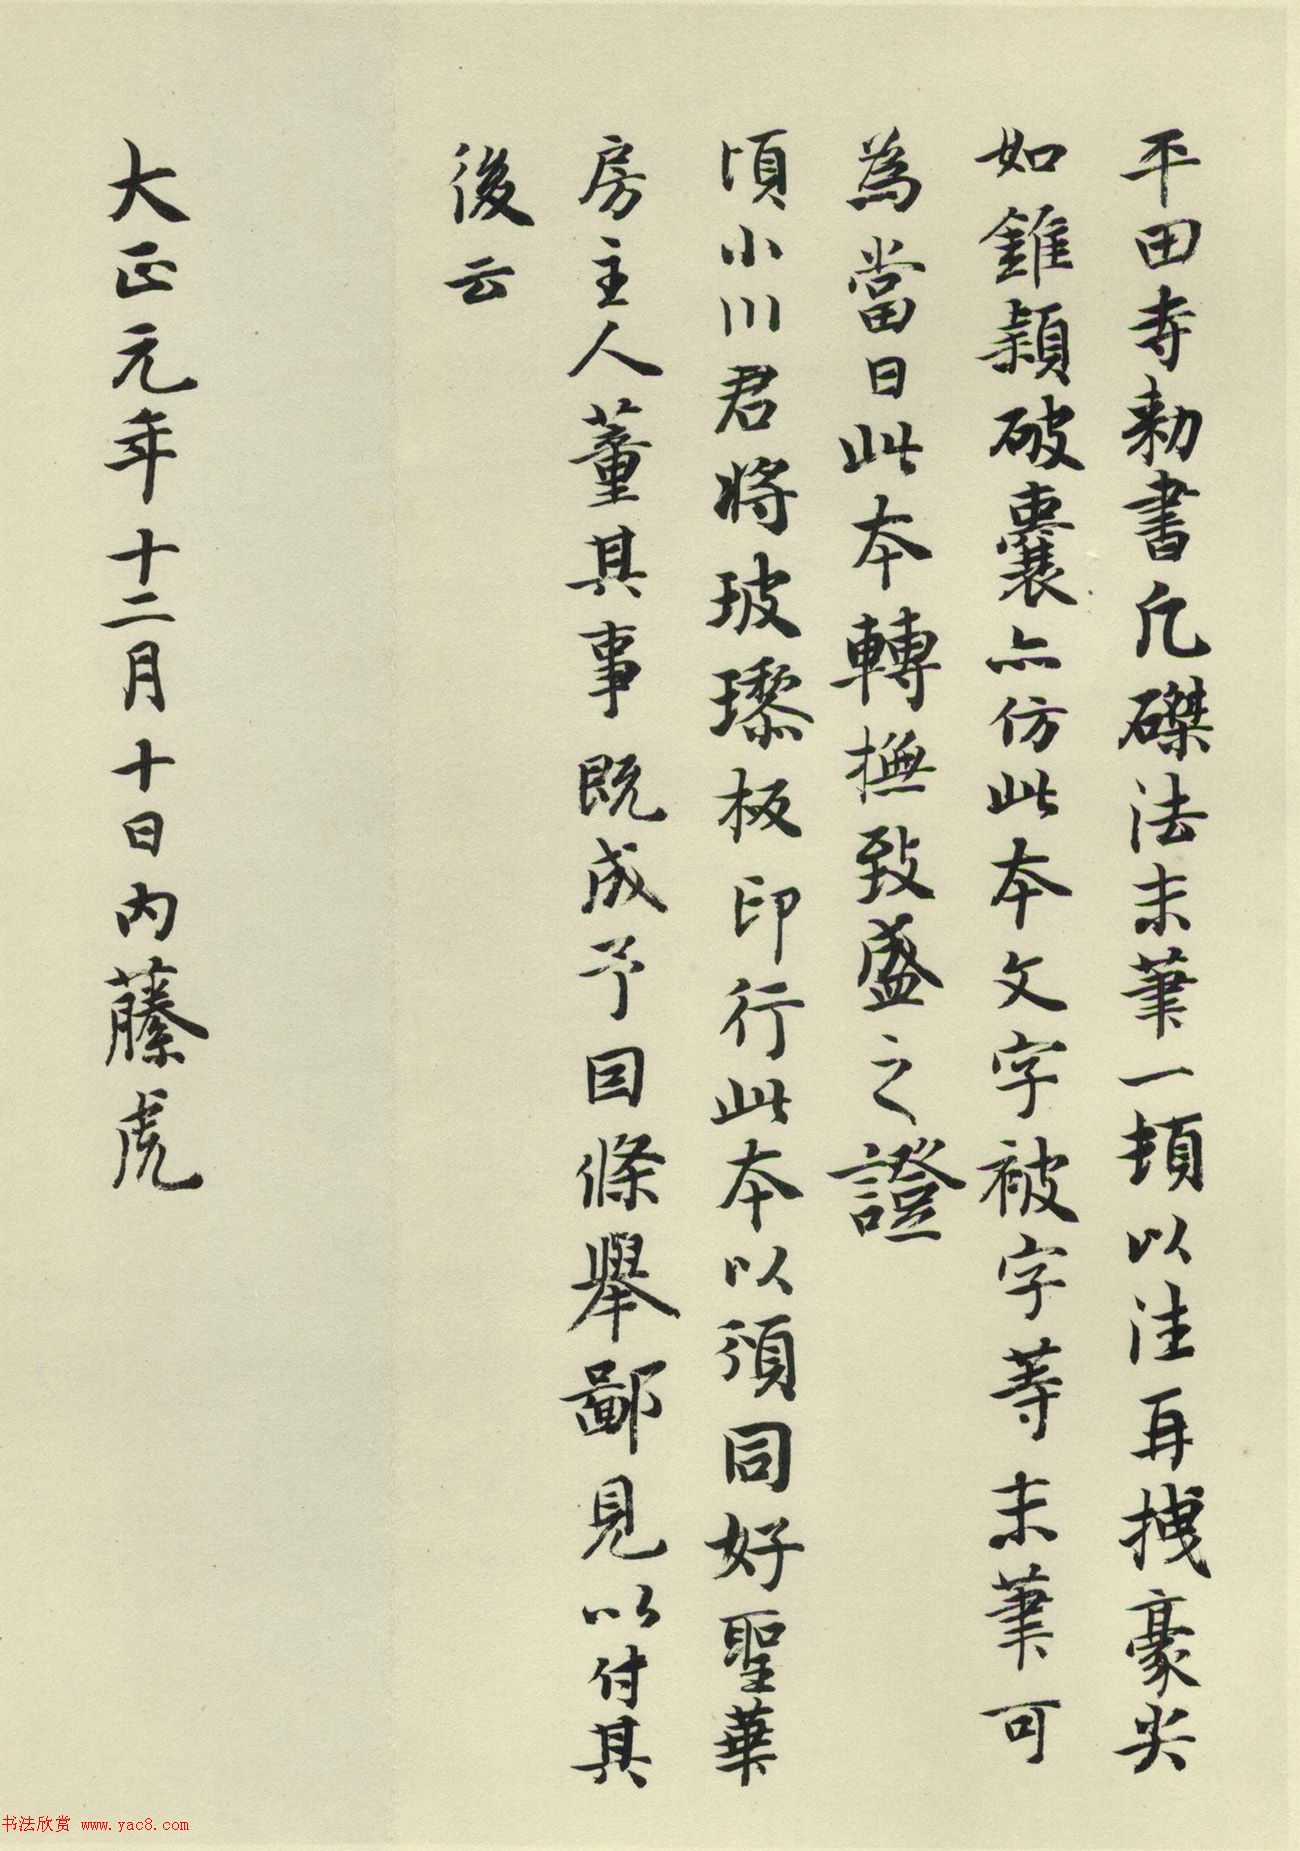 平田寺勅書凡磔法末筆一頓以注再拽豪尖
如錐穎破囊亦仿此本文字被字等末筆可
為當日此本轉撫致盛之證
頃小川君將玻瓈板印行此本以頒同好聖華
房主人董其事既成予因條舉鄙見以付其
後云
大正元年十二月十日內藤虎
书法欣赏 www.yac8.com